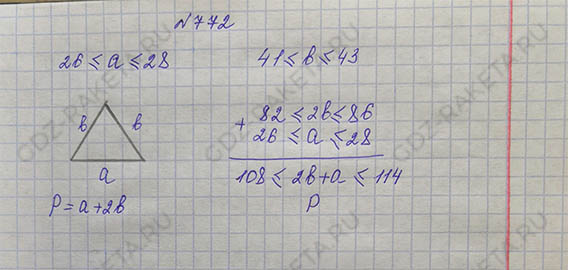 №772
26 ≤ a ≤ 28
41 ≤ в ≤ 43
в в
a
P = a + 2в
+ 82 ≤ 2в ≤ 86
26 ≤ a ≤ 28
108 ≤ 2в + a ≤ 114
P
GDZ-RAKETA.RU